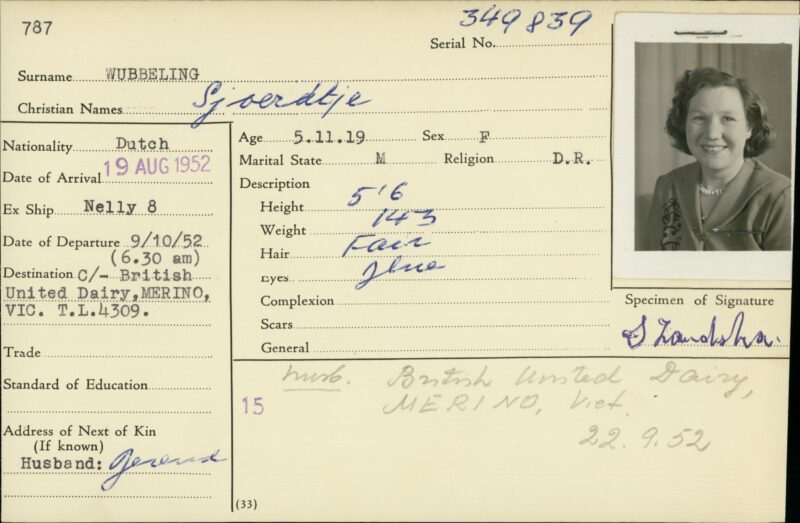 787
349839
Serial No.
Surname WUBBELING
Christian Names Sjoerdtje
Nationality Dutch
Date of Arrival 19 AUG 1952
Ex Ship Nelly 8
Date of Departure 9/10/52
(6.30 am)
Destination C/- British
United Dairy, MERINO,
VIC. T.L.4309.
Trade
Standard of Education
Address of Next of Kin
(If known)
Husband: Berend
Age 5.11.19 Sex F
Marital State M Religion D.R.
Description
Height 5'6
Weight 143
Hair Fair
Eyes Blue
Complexion
Scars
General
Specimen of Signature
S Zandstra.
15
husb. British United Dairy,
MERINO, Vict.
22.9.52
(33)